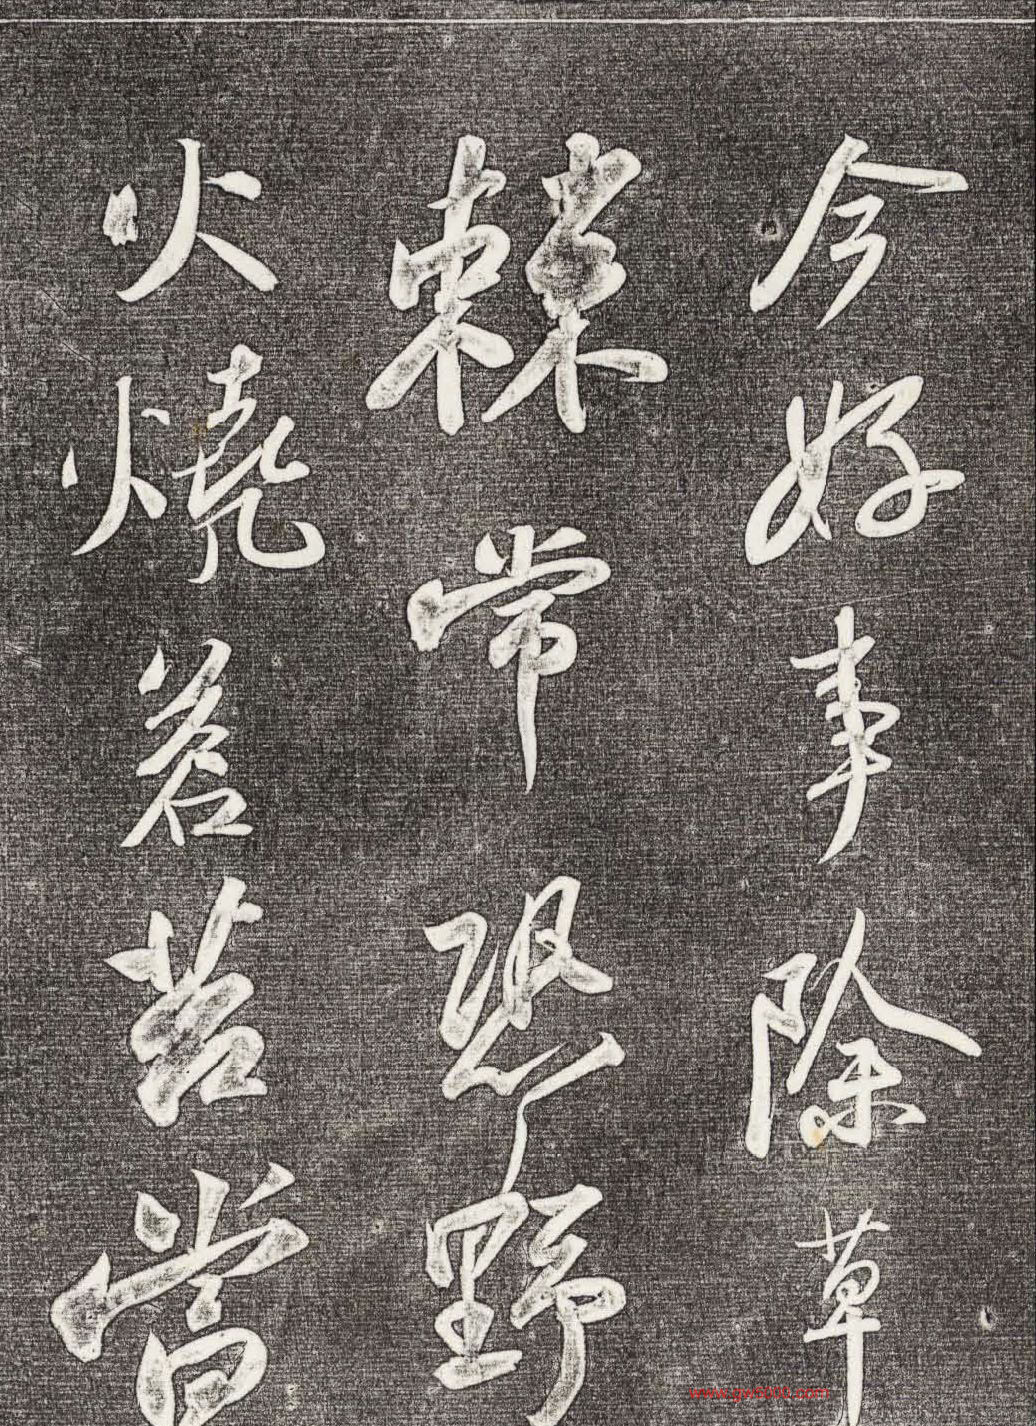 今好事除草
棘常恐野
火燒若苦當
www.gw5000.com